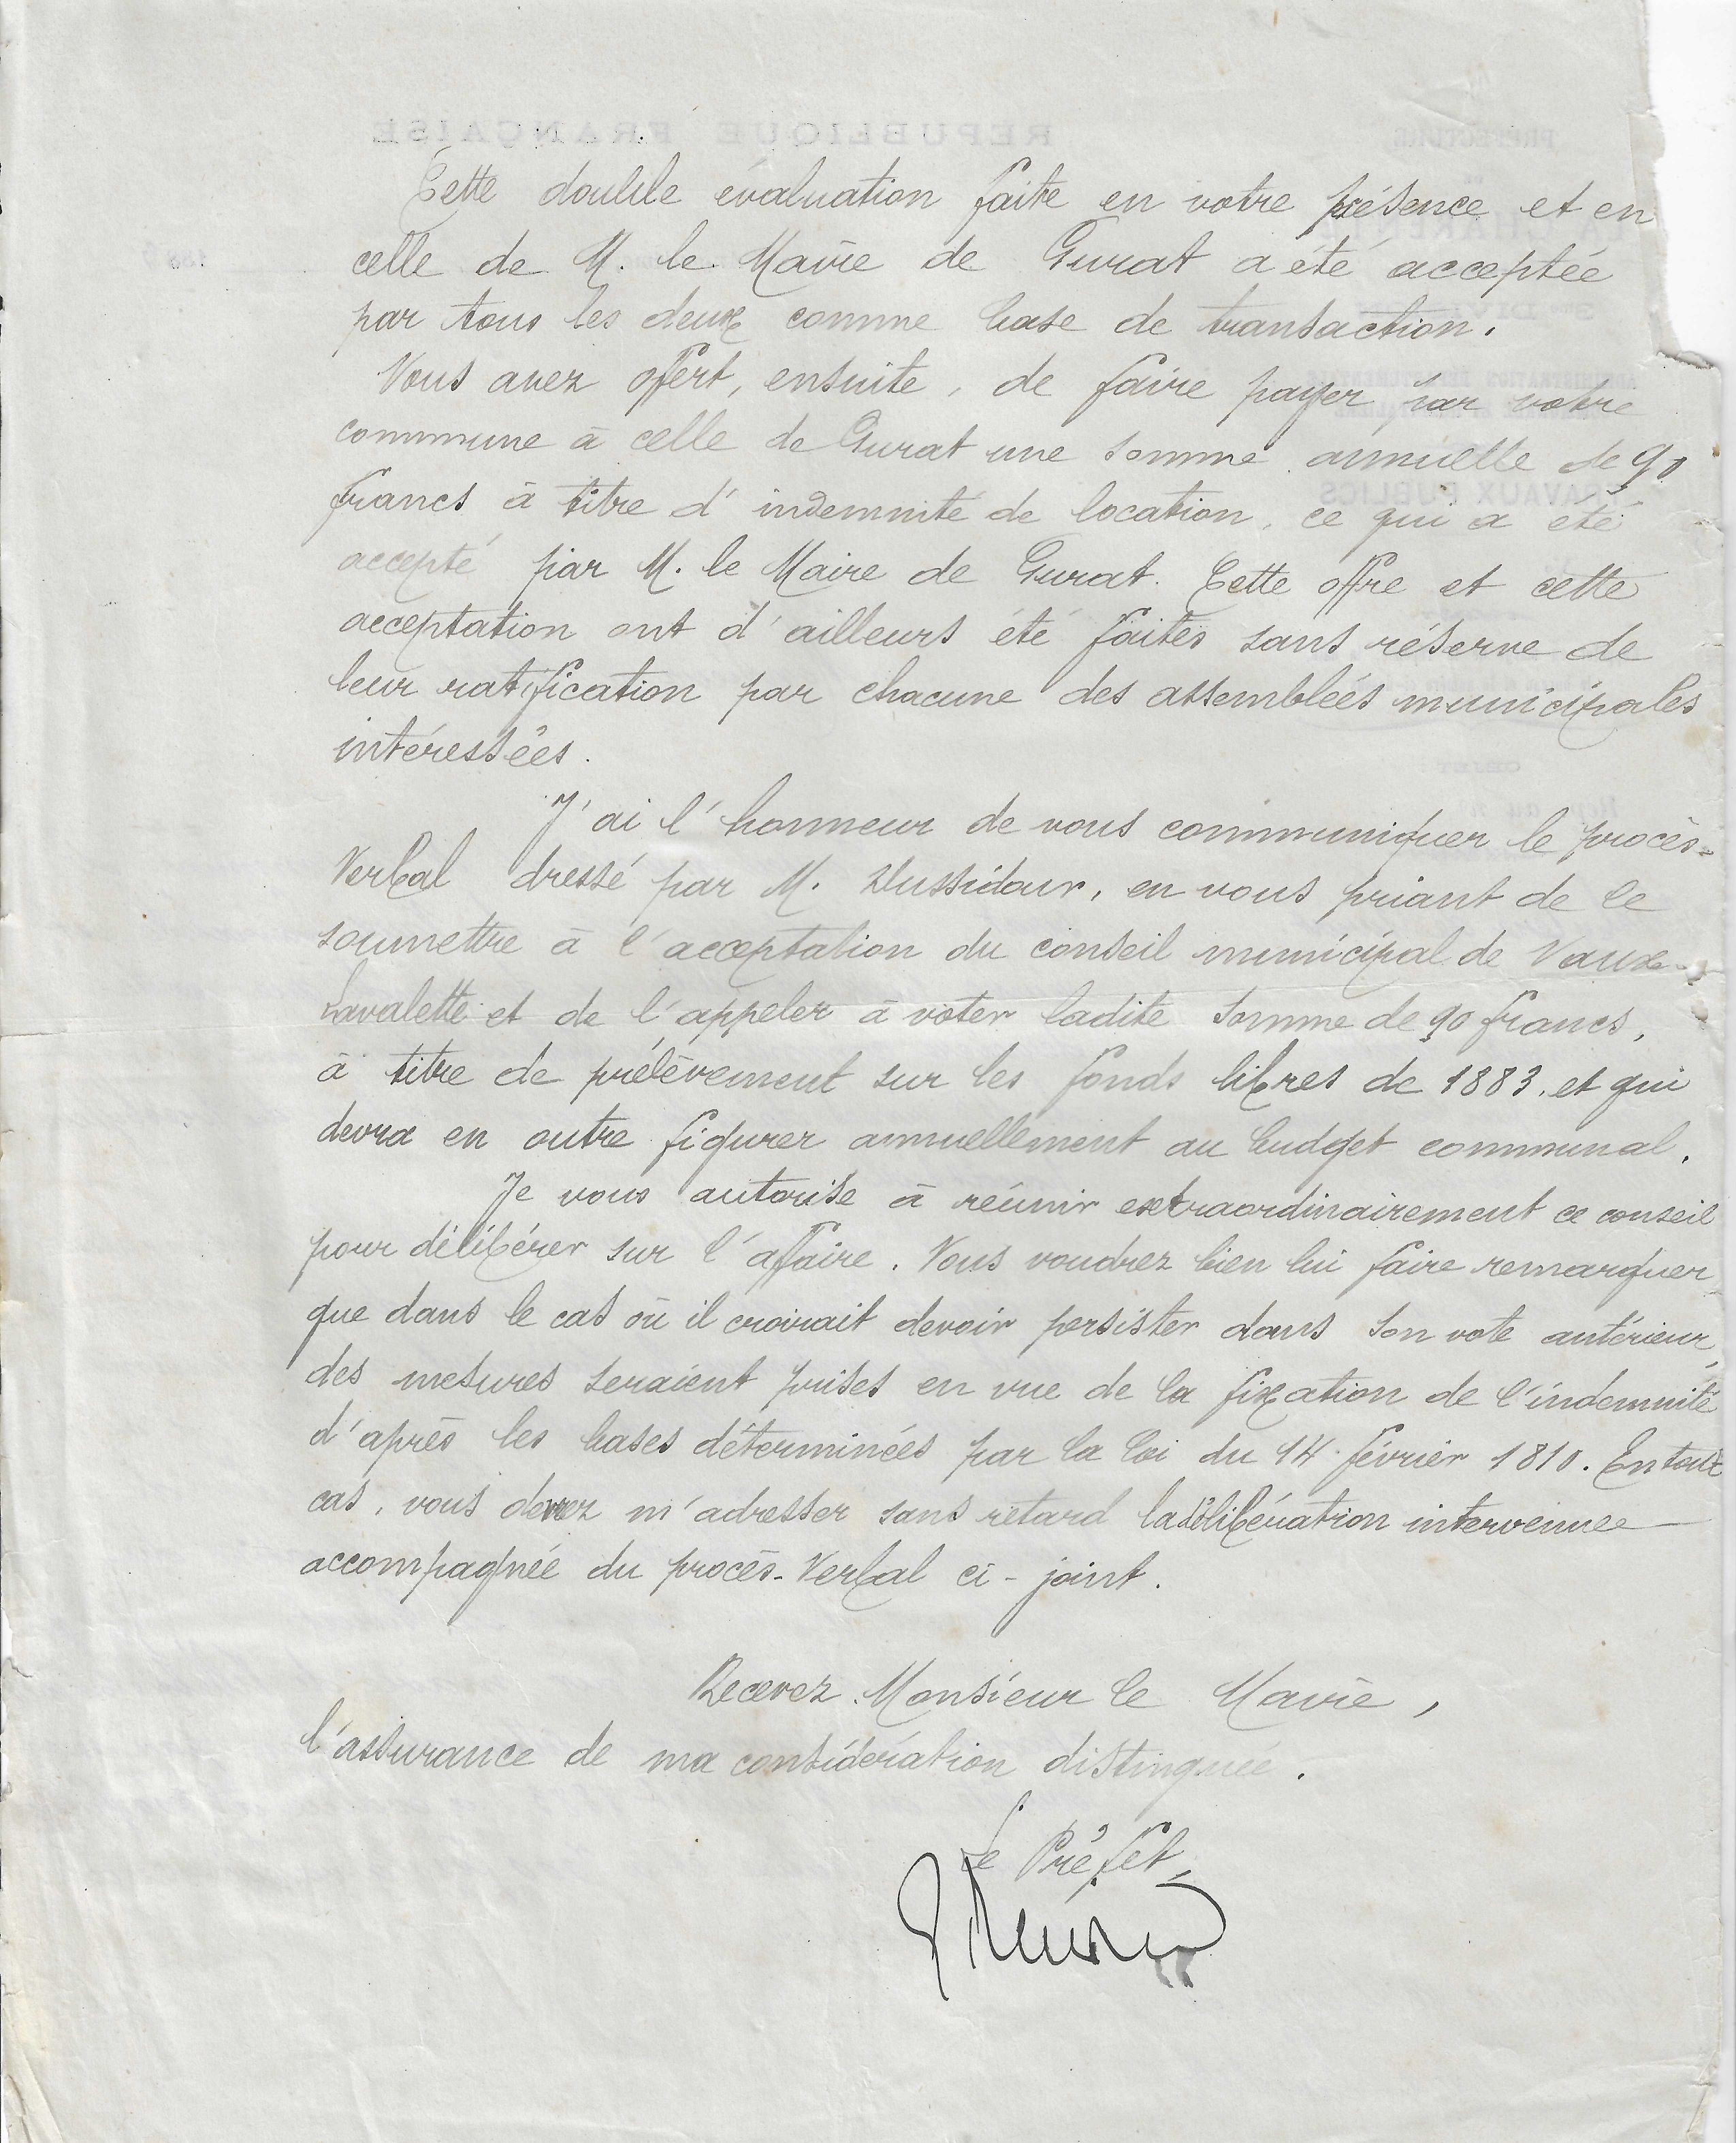 Cette double évaluation faite en votre présence et en
celle de M. le Maire de Gurat a été acceptée
par tous les deux comme base de transaction.
Vous avez offert, ensuite, de faire payer par votre
commune à celle de Gurat une somme annuelle de 90
francs à titre d'indemnité de location, ce qui a été
accepté par M. le Maire de Gurat. Cette offre et cette
acceptation ont d'ailleurs été faites sans réserve de
leur ratification par chacune des assemblées municipales
intéressées.
J'ai l'honneur de vous communiquer le procès-
Verbal dressé par M. en vous priant de le
soumettre à l'acceptation du conseil municipal de Vaux-
Lavalette et de l'appeler à voter ladite somme de 90 francs,
à titre de prélèvement sur les fonds libres de 1883, et qui
devra en outre figurer annuellement au budget communal.
Je vous autorise à réunir extraordinairement ce conseil
pour délibérer sur l'affaire. Vous voudrez bien lui faire remarquer
que dans le cas où il croirait devoir persister dans son vote antérieur,
des mesures seraient prises en vue de la fixation de l'indemnité
d'après les bases déterminées par la loi du 14 février 1810. En tout
cas, vous devez m'adresser sans retard la délibération intervenue
accompagnée du procès-Verbal ci-joint.
Recevez Monsieur le Maire,
l'assurance de ma considération distinguée.
Le Préfet,